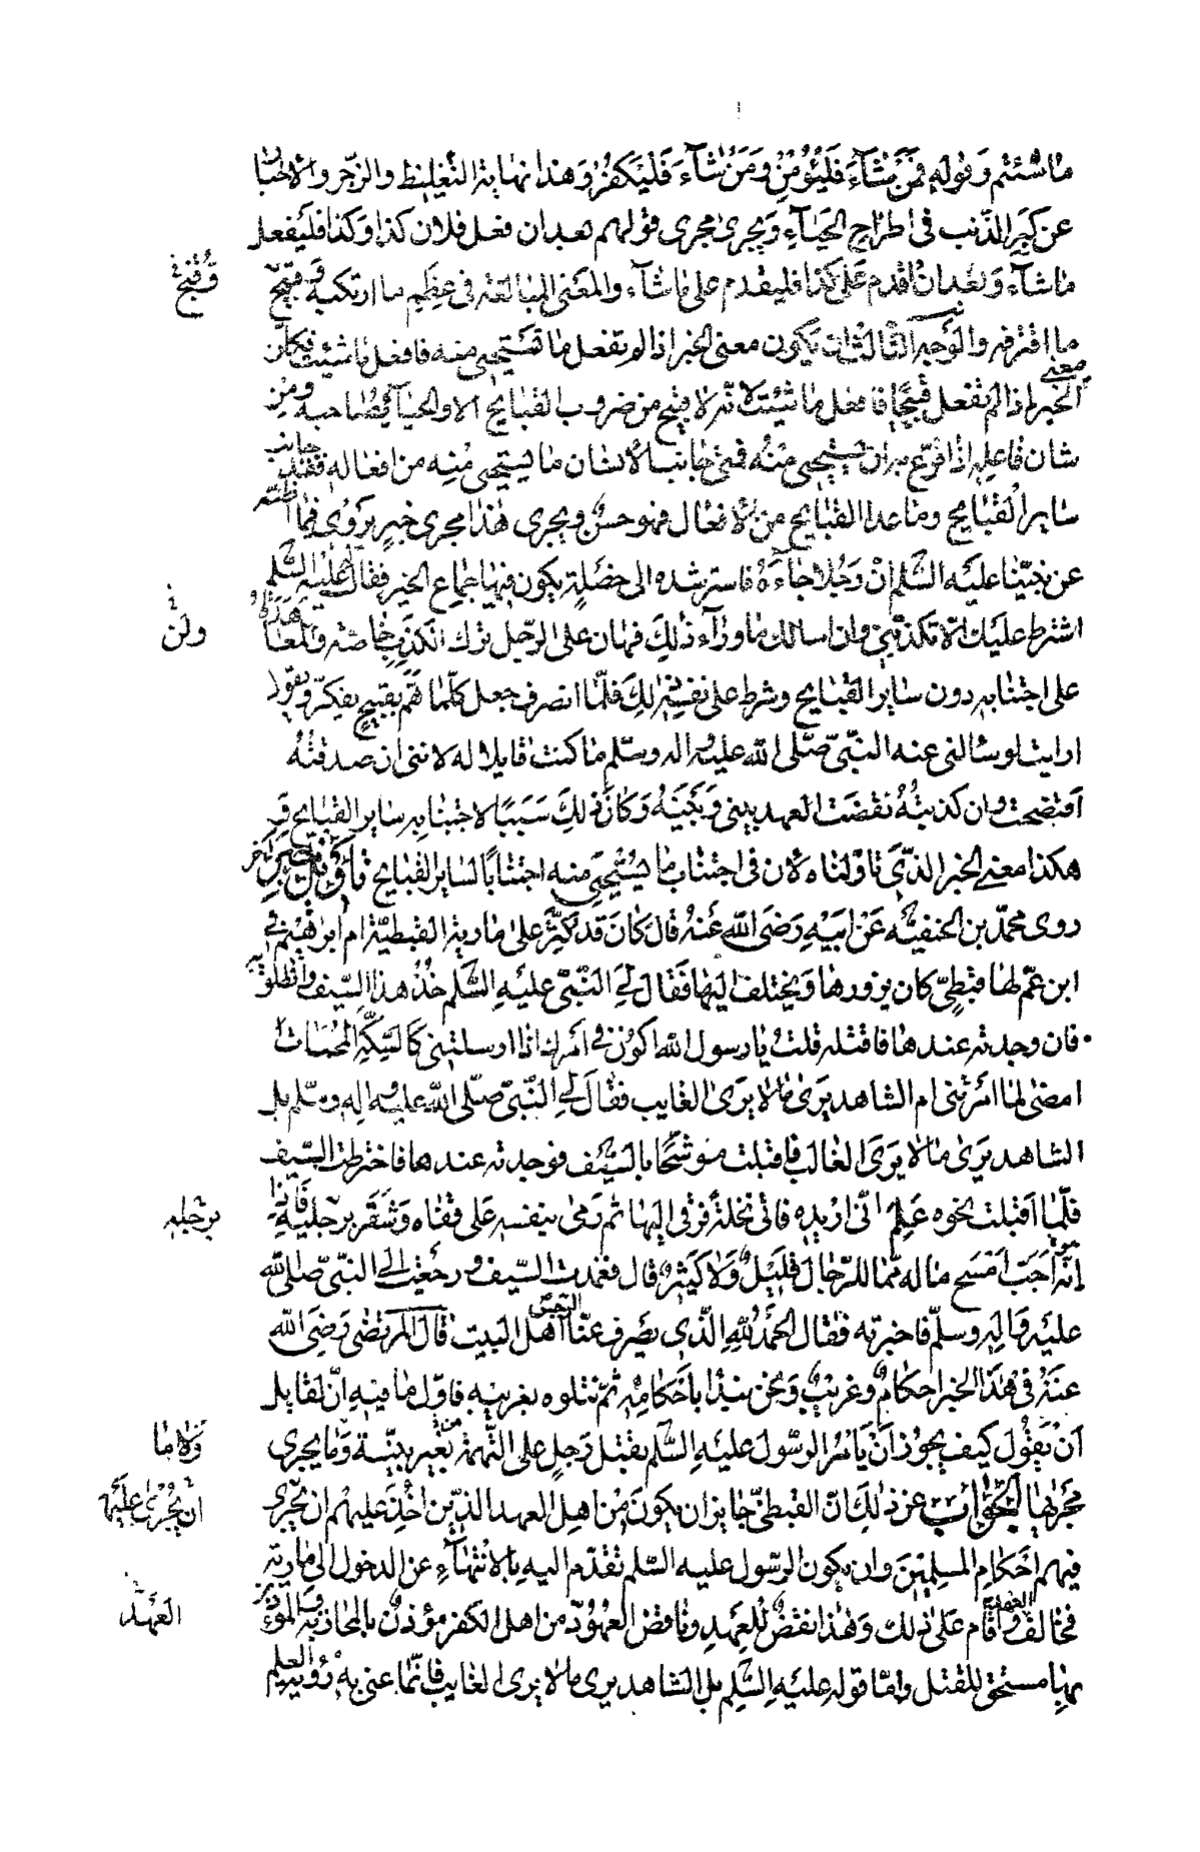 ما شئتم وقوله فَمَنْ شَآءَ فَلْيُؤْمِنْ وَمَنْ شَآءَ فَلْيَكْفُرْ وَهذا نهاية التغليظ والزّجر والاخبار
عن كبر الذّنب فى اطراح الحيآءِ ويجرى مجرى قولهم بعد ان فعل فلان كذا وكذا فليفعل
ما شآء وبعد ان اقدم على كذا فليقدم على ما شآء والمعنى المبالغة فى عظيم ما ارتكبه وقبيح
وقُبْح
ما اقترفه والوجه الثالث ان يكون معنى الخبر اذا لم تفعل ما تستحيى منه فافعل ما شئت فكانّ
معنى
الخبر اذا لم تفعل قبيحًا فافعل ما شئت لانّه لا قبيح من ضروب القبايح الا والحيآء يصاحبه ومن
شان فاعله اذا قرع به ان يستحيى منه فمتى جانب الانسان ما يستحيى منه من افعاله فقد جانب
ساير القبايح وما عدا القبايح من الافعال فهو حسن ويجرى هذا مجرى خبر يروى فيما
عن نبيّنا عليه السّلم انّ رجلا جآءه فاسترشده الى خصلة يكون فيها جماع الخير فقال عليه السّلم
اشترط عليك الّا تكذبنى وان اسالك ما ورآء ذلك فهان على الرّجل ترك الكذب خاصّة
ولن
على اجتنابه دون ساير القبايح وشرط على نفسه ذلك فلمّا انصرف جعل كلّما همّ بقبيح يفكّر ويقول
ارايت لو سالنى عنه النّبىّ صلّى الله عليه واله وسلّم ما كنت قايلا له لاننى ان صدقته
افتضحت وان كذبته نقضت العهد بينى وبينه وكان ذلك سببًا لاجتنابه ساير القبايح و
هكذا معنى الخبر الذى تاوّلناه لان فى اجتناب ما يستحيى منه اجتنابًا لساير القبايح تاويل خبر اخر
روى محمّد بن الحنفيّه عن ابيه رضى الله عنه قال كان قد كثّر على مارية القبطيّة ام ابرهيم فى
ابن عمّ لها قبطىّ كان يزورها ويختلف اليها فقال لى النّبىّ عليه السّلم خذ هذا السّيف وانطلق به
فان وجدته عندها فاقتله قلت يا رسول الله اكون فى امرك اذا ارسلتنى كالسكّة المحماة
امضى لما امرتنى ام الشاهد يرى ما لا يرى الغايب فقال لى النّبىّ صلّى الله عليه واله وسلّم بل
الشاهد يرى ما لا يرى الغائب فاقبلت متوشّحًا بالسّيف فوجدته عندها فاخترطت السّيف
فلمّا اقبلت نحوه علم انّى اريده فاتى نخلة فرقى اليها ثم رمى بنفسه على قفاه وشغر برجليه فاذا
برجله
انّه اجبّ امسح ما له ممّا للرّجال قليل ولا كثير قال فغمدت السّيف ورجعت الى النبىّ صلى الله
عليه واله وسلّم فاخبرته فقال الحمد لله الّذى يصرف عنّا الرجس اهل البيت قال المرتضى رضى الله
عنه فى هذا الخبر احكام وغريب ونحن نبدا باحكامه ثم نتلوه بغريبه فاوّل ما فيه انّ لقايل
ان يقول كيف يجوز ان يامر الرّسول عليه السّلم بقتل رجل على التّهمة بغير بيّنة وما يجرى
ولا ما
مجراها الجواب عن ذلك انّ القبطىّ جايز ان يكون من اهل العهد الذين اخذ عليهم ان تجرى
ان يجرى عليه
فيهم احكام المسلمين وان يكون الرّسول عليه السّلم تقدّم اليه بالانتهآء عن الدخول الى مارية
فخالف واقام على ذلك وهذا نقض للعهد وناقض العهود من اهل الكفر مؤذن بالمحاربة والمؤذن
العَهْد
بها مستحق للقتل وامّا قوله عليه السّلم بل الشاهد يرى ما لا يرى الغايب فانّما عنى به رؤية العلم